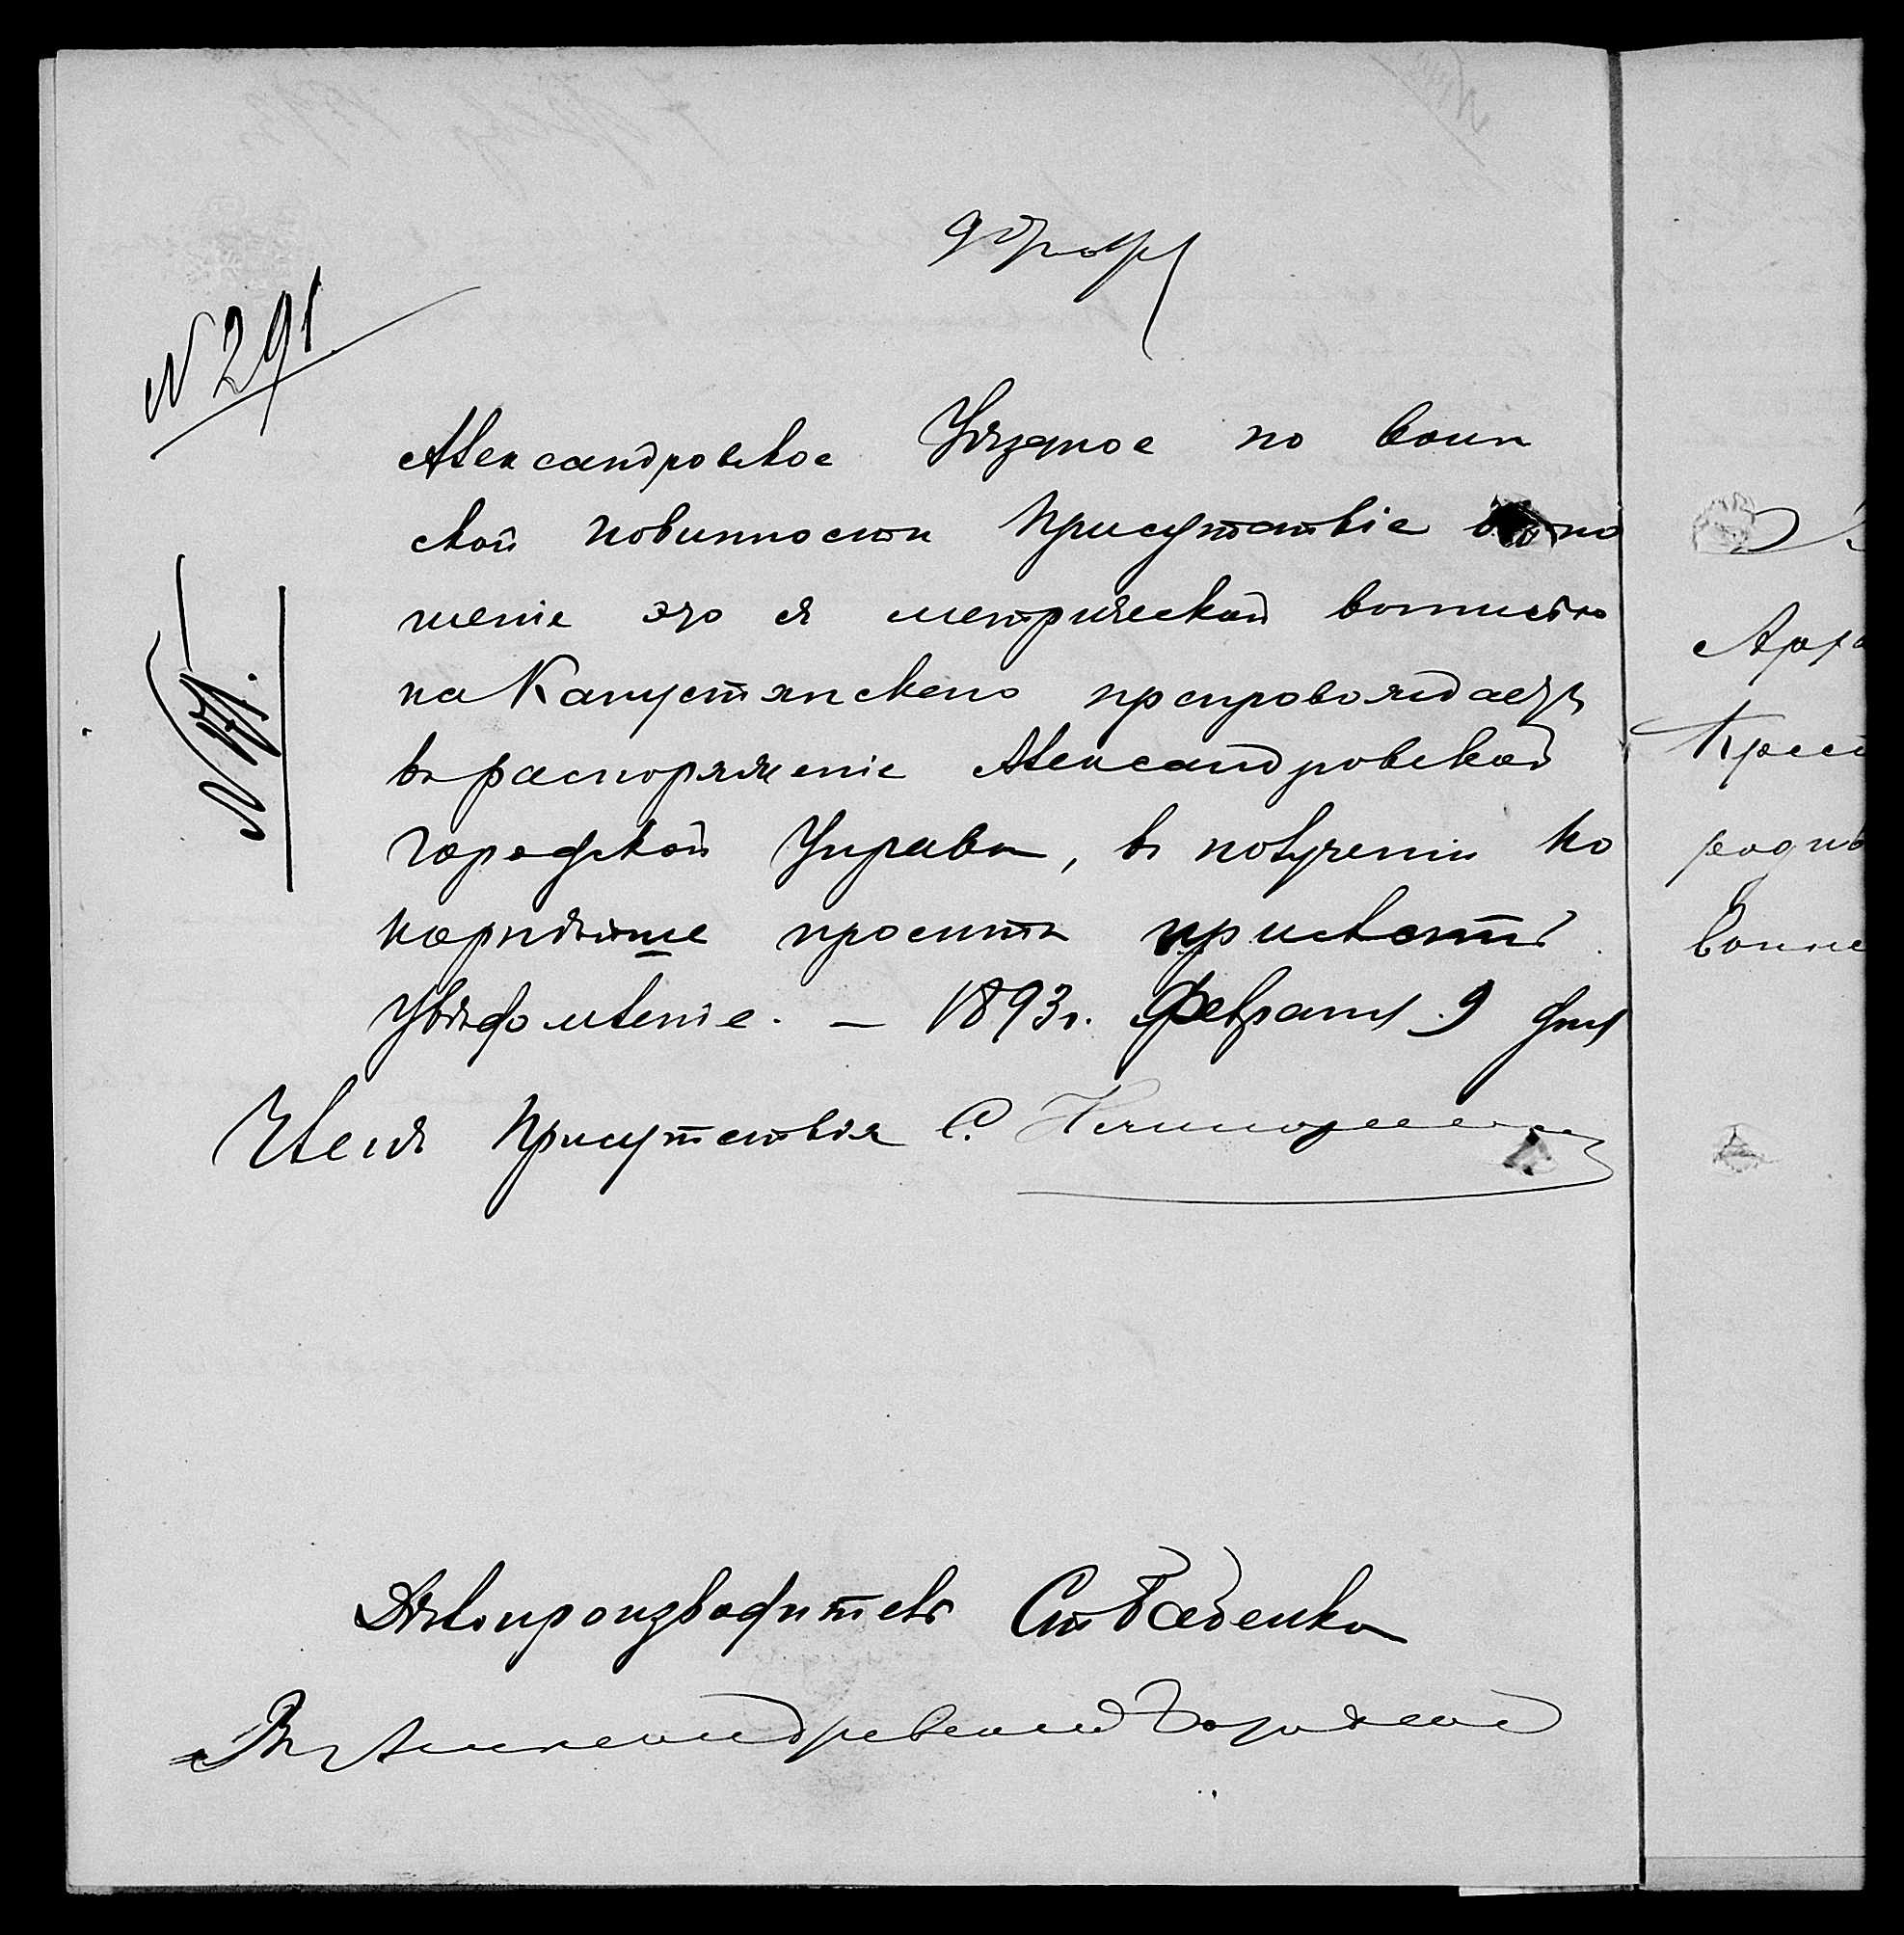 9 Февр
№ 291
Александровское Уѣздное по воин
ской повинности Присутствіе отно
шеніе это съ метрической выписью
на Капустянскаго препровождаетъ
въ распоряженіе Александровской
Городской Управы, въ полученіи ко
просить прислать
Увѣдомленіе. — 1893 г. Февраля 9 дня
Членъ Присутствія С.
Дѣлопроизводитель Ст Баденко
Въ Александровскую Городскую
Арха
Крест
родив
Воинс